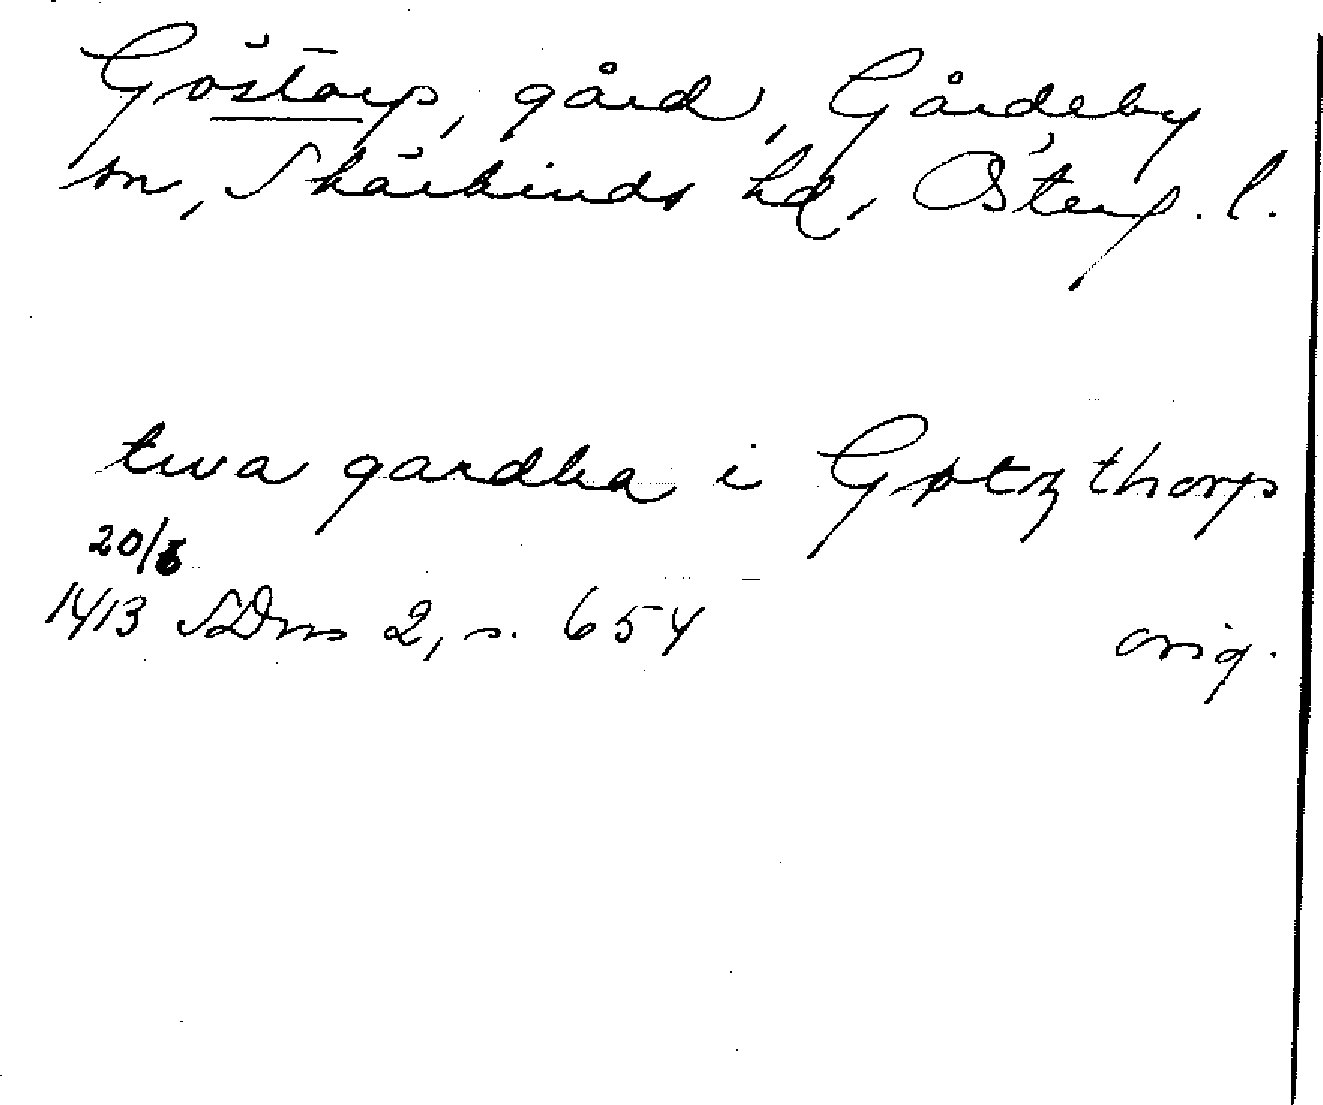 Göstorp, gård, Gårdeby
sn, Skärkinds hd, Österg. l.
twa gardha i Gøtzthorp
20/6
1413 SDns 2, s. 654 orig.